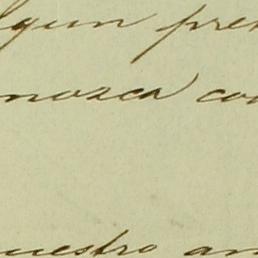 lgun pre
nozca con
uestro an